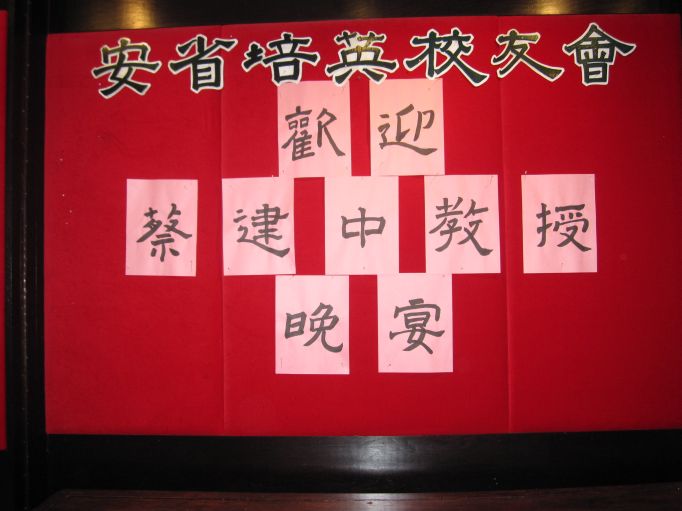 安省培英校友會
歡迎
蔡建中教授
晚宴